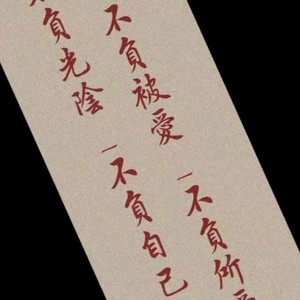 不負被愛一不負所愛
不負光陰一不負自己